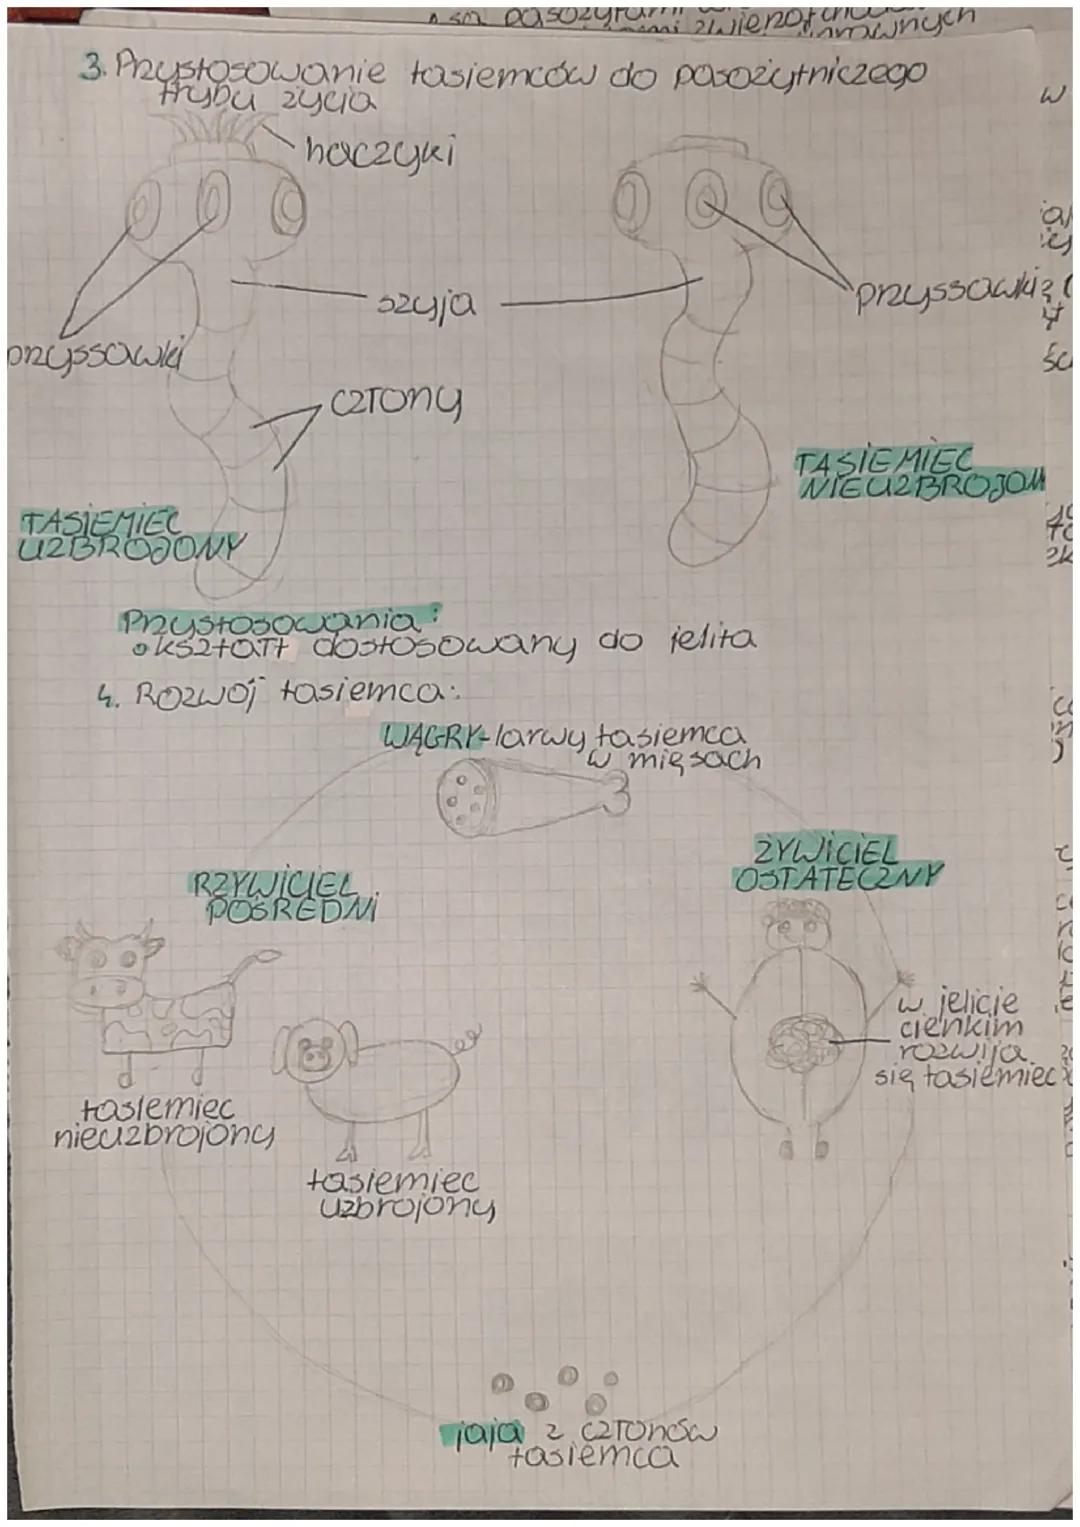 są pasożytami
3. Przystosowanie tasiemców do pasożytniczego
trybu życia
haczyki
szyja
przyssawki
przyssawki
człony
TASIEMIEC
NIEUZBROJON
TASIEMIEC
UZBROJONY
Przystosowania:
• kształt dostosowany do jelita
4. Rozwój tasiemca:
WĄGRY-larwy tasiemca
w mięsach
ŻYWICIEL
OSTATECZNY
RZYWICIEL
POŚREDNI
w jelicie
cienkim
rozwija
się tasiemiec
tasiemiec
nieuzbrojony
tasiemiec
uzbrojony
jaja z członów
tasiemca